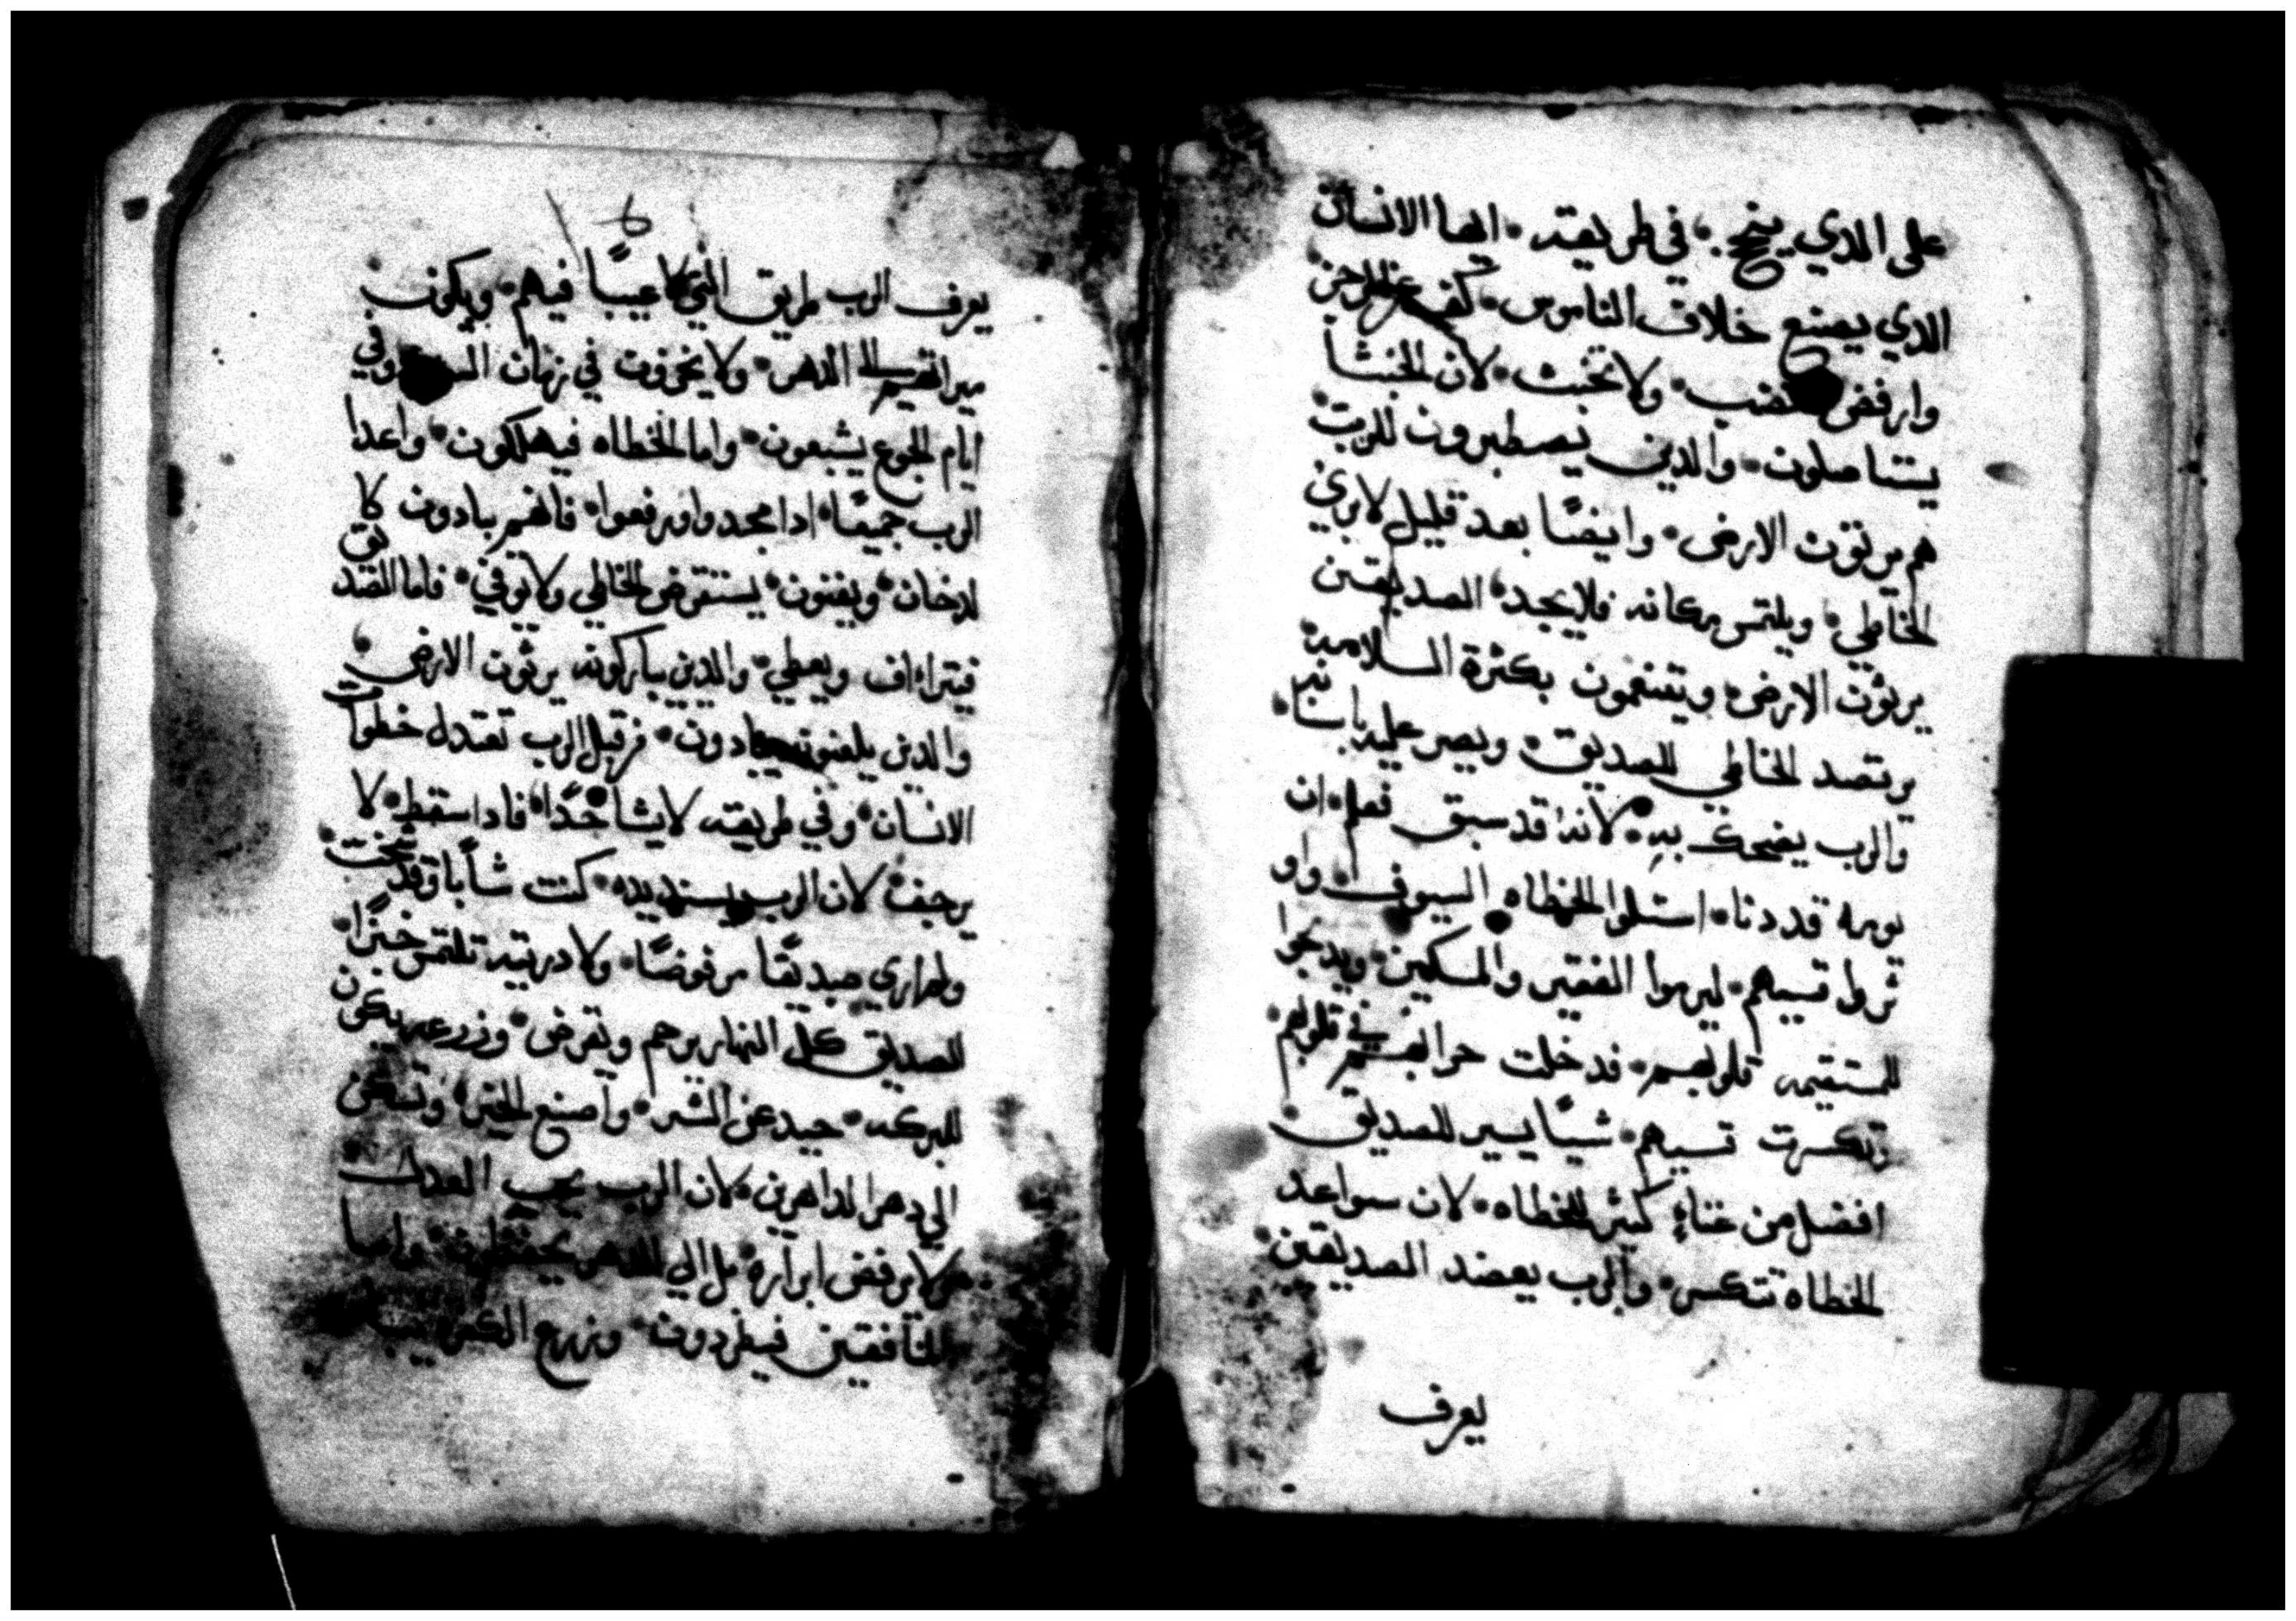 على الدي ينجح • في طريقته • ايها الانسان
الدي يصنع خلاف الناموس • كف عن الرجز
وارفض الغضب • ولا تخبث • لان الخبثا
يستاصلون • والدين يصطبرون للرب •
هم يرتون الارض • وايضًا بعد قليل لا يري
الخاطي • ويلتمس مكانه فلا يجد • الصديقين
يرثون الارض • ويتنعمون بكثرة السلامه •
يرتصد الخاطي للصديق • ويصر عليه باسنانه •
والرب يضحك به • لانه قد سبق فعلم • ان
يومه قد دنا • استلوا الخطاه السيوف • واو
تروا قسيهم • ليرموا الفقير والمسكين • ويدبحوا
المستقيمه قلوبهم • فدخلت حرابهم في قلوبهم •
وتكسرت قسيهم • شيًا يسير للصديق •
افضل من غناءٍ كثير للخطاه • لان سواعد
الخطاه تتكسر • والرب يعضد الصديقين •
يعرف
يعرف الرب طريق الذي لا عيبًا فيهم • ويكون
ميراتهم الى الدهر • ولا يخزون في زمان السو وفي
ايام الجوع يشبعون • واما الخطاه فيهلكون • واعدا
الرب جميعًا • ادا مجدوا ورفعوا • فانهم يبادون كا
لدخان • ويفنون • يستقرض الخاطي ولا يوفي • فاما الصديق
فيتراءاف ويعطي • والدين يباركونه يرثون الارض •
والدين يلعنونه يبادون • من قبل الرب تعتدل خطوات
الانسان • وفي طريقته لا يشا خدًا • فادا سقط • لا
يرجف • لان الرب يسند يده • كنت شابًا وقد شخت •
ولم اري صديقًا مرفوضًا • ولا دريته تلتمس خبزًا •
الصديق كل النهار يرحم ويقرض • وزرعه يكون
للبركه • حيد عن الشر • واصنع الخير • وتسكن
الي دهر الداهرين • لان الرب يحب العدل •
ولا يرفض ابراره • بل الي الدهر يحفظون • واما
المنافقين فيطردون • وزرع الكفره يبيد